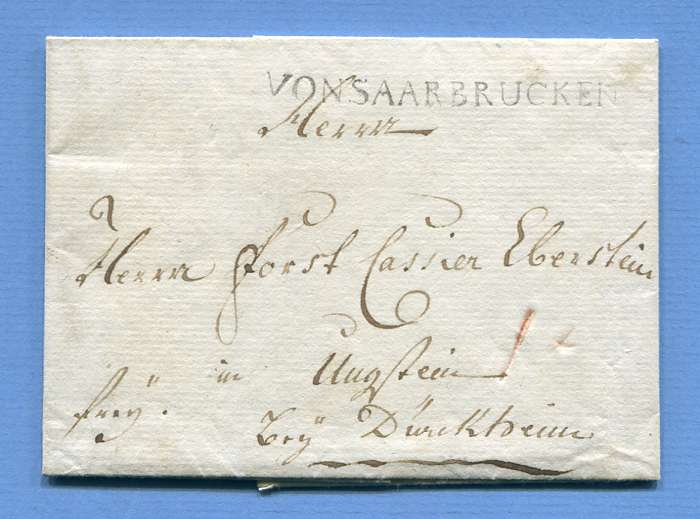 VON SAARBRUCKEN
Herrn
Herrn Forst Cassier Eberstein
in Ungstein
frey. bey Dürckheim